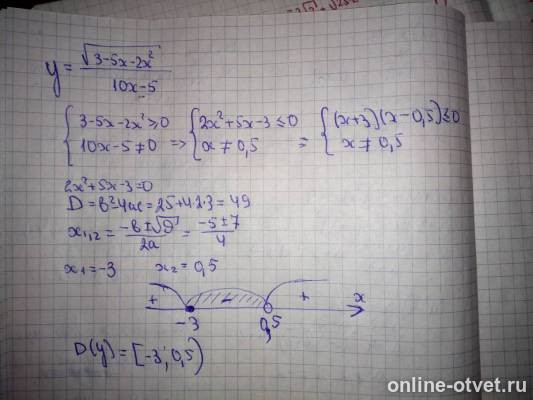 y = √(3-5x-2x²) / (10x-5)
{ 3-5x-2x² ≥ 0 { 2x²+5x-3 ≤ 0 { (x+3)(x-0,5) ≤ 0
10x-5 ≠ 0 => x ≠ 0,5 = x ≠ 0,5
2x²+5x-3=0
D = b²-4ac = 25+4·2·3 = 49
x₁,₂ = (-b±√D) / 2a = (-5±7) / 4
x₁ = -3 x₂ = 0,5
+ - + x
-3 0,5
D(y) = [-3; 0,5)
online-otvet.ru